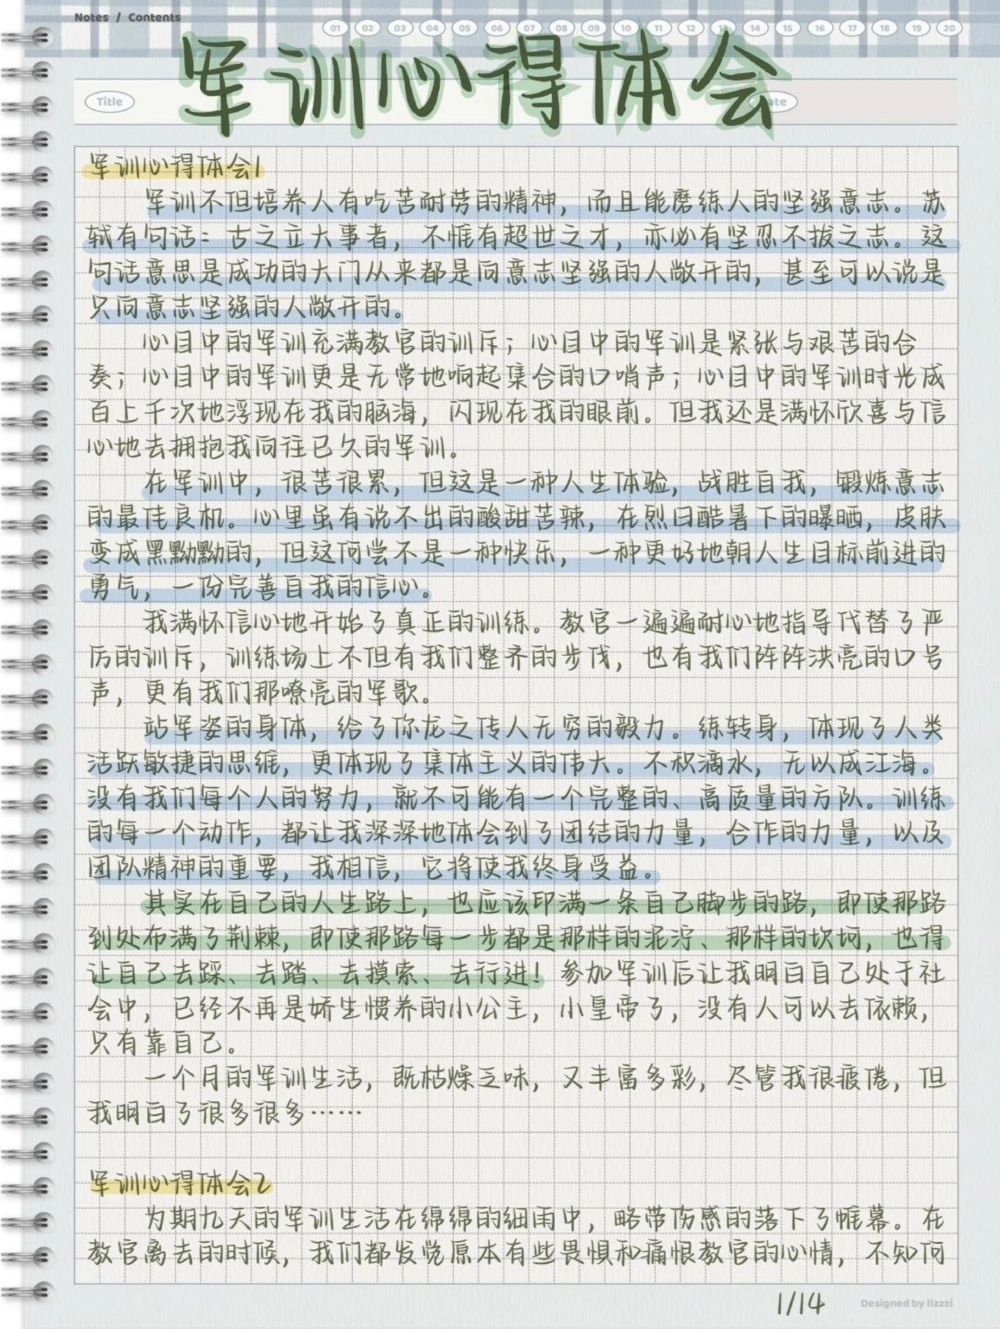 Notes / Contents
01 02 03 04 05 06 07 08 09 10 11 12 13 14 15 16 17 18 19 20
军训心得体会
Title
军训心得体会1
军训不但培养人有吃苦耐劳的精神，而且能磨练人的坚强意志。苏
轼有句话：古之立大事者，不惟有超世之才，亦必有坚忍不拔之志。这
句话意思是成功的大门从来都是向意志坚强的人敞开的，甚至可以说是
只向意志坚强的人敞开的。
心目中的军训充满教官的训斥；心目中的军训是紧张与艰苦的合
奏；心目中的军训更是无常地响起集合的口哨声；心目中的军训时光成
百上千次地浮现在我的脑海，闪现在我的眼前。但我还是满怀欣喜与信
心地去拥抱我向往已久的军训。
在军训中，很苦很累，但这是一种人生体验，战胜自我，锻炼意志
的最佳良机。心里虽有说不出的酸甜苦辣，在烈日酷暑下的曝晒，皮肤
变成黑黝黝的，但这何尝不是一种快乐，一种更好地朝人生目标前进的
勇气，一份完善自我的信心。
我满怀信心地开始了真正的训练。教官一遍遍耐心地指导代替了严
厉的训斥，训练场上不但有我们整齐的步伐，也有我们阵阵洪亮的口号
声，更有我们那嘹亮的军歌。
站军姿的身体，给了你龙之传人无穷的毅力。练转身，体现了人类
活跃敏捷的思维，更体现了集体主义的伟大。不积滴水，无以成江海。
没有我们每个人的努力，就不可能有一个完整的、高质量的方队。训练
的每一个动作，都让我深深地体会到了团结的力量，合作的力量，以及
团队精神的重要，我相信，它将使我终身受益。
其实在自己的人生路上，也应该印满一条自己脚步的路，即使那路
到处布满了荆棘，即使那路每一步都是那样的泥泞、那样的坎坷，也得
让自己去踩、去踏、去摸索、去行进！参加军训后让我明白自己处于社
会中，已经不再是娇生惯养的小公主，小皇帝了，没有人可以去依赖，
只有靠自己。
一个月的军训生活，既枯燥乏味，又丰富多彩，尽管我很疲倦，但
我明白了很多很多……
军训心得体会2
为期九天的军训生活在绵绵的细雨中，略带伤感的落下了帷幕。在
教官离去的时候，我们都发觉原本有些畏惧和痛恨教官的心情，不知何
1/14
Designed by lizzzi